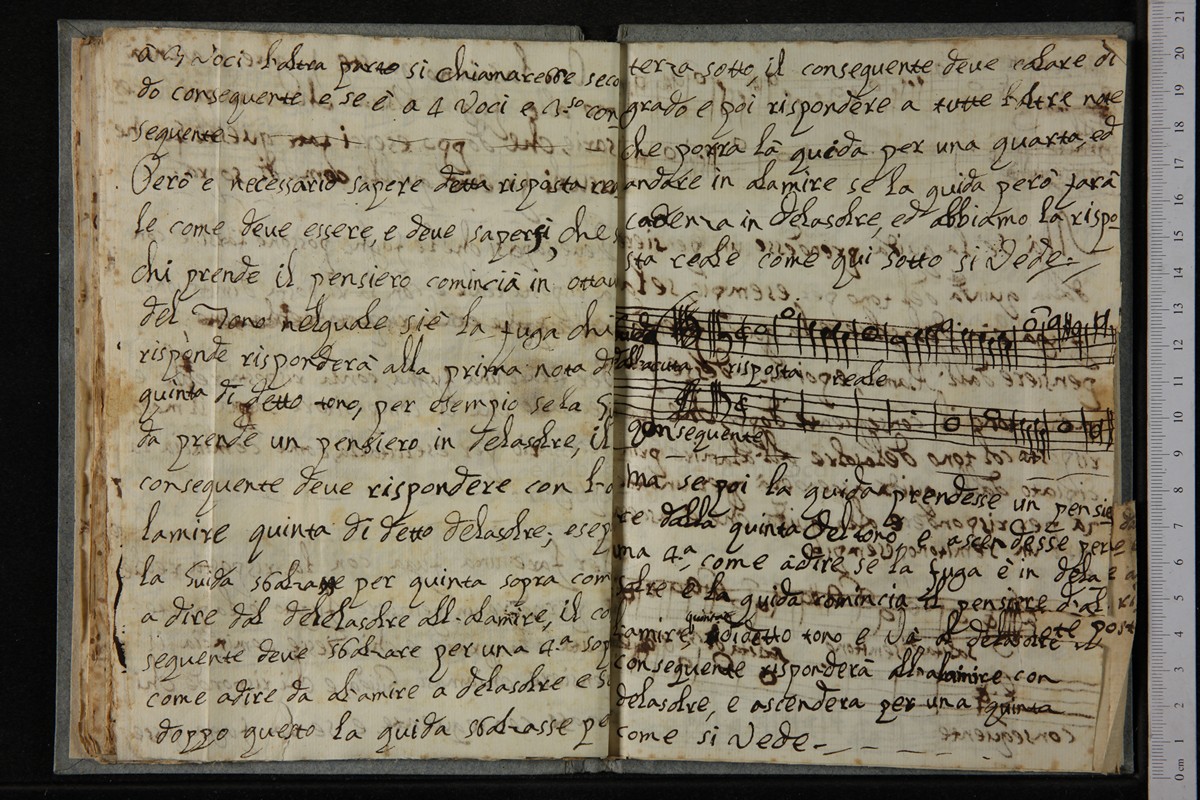 à 3 Voci l'altra parte si chiamarebbe seco
do conseguente e se è a 4 Voci e 3.so con
seguente
Però è necessario sapere detta risposta rea
le come deve essere, e deve sapersi, che s
chi prende il pensiero comincià in ottav
del Tono nel quale si è la fuga chi
rispende risponderà alla prima nota d
quinta di detto tono, per esempio se la G
da prende un pensiero in delasolre, il
conseguente deve rispondere con l'a
lamire quinta di detto delasolre; e se p
la Guida sbalzasse per quinta sopra com
a dire dal delelasolre all'alamire, il co
seguente deve sbalzare per una 4.a sop
come a dire da alamire a delasolre e se
doppo questo la guida sbalzasse pe
terza sotto, il conseguente deve calare di
grado e poi rispondere a tutte l'altre note
che porrà la guida per una quarta, ed
andare in alamire se la guida però farà
cadenza in delasolre, ed abbiamo la rispo-
sta reale come qui sotto si Vede
risposta reale
conseguente
ma se poi la guida prendesse un pensie
re dalla quinta del tono e ascendesse per
una 4.a, come a dire se la fuga è in dela
solre e la guida comincia il pensiere d'al
lamire quinta di detto tono e Và al delasolre il
conseguente risponderà all'alamire con
delasolre, e ascenderà per una quinta
come si Vede
conseguente